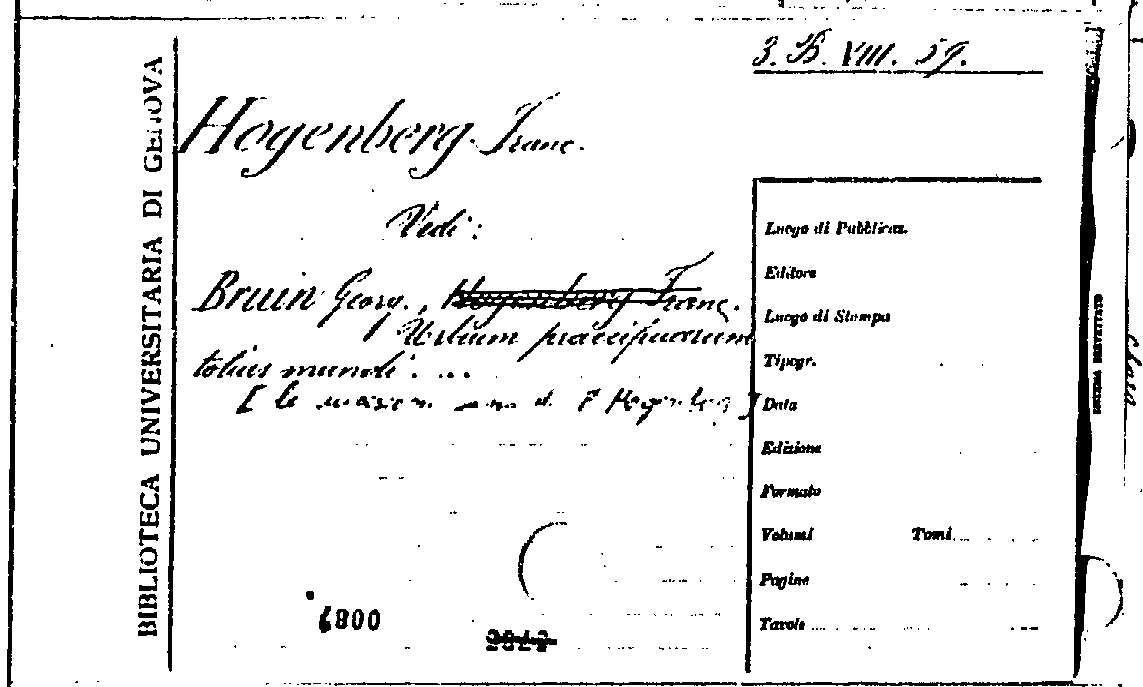 3. B. VIII. 59.
BIBLIOTECA UNIVERSITARIA DI GENOVA
Hogenberg Franc.
Vedi:
Bruin Georg., Hogenberg Franc.
Urbium praecipuarum
totius mundi....
[le incisioni sono di F Hogenberg]
Luogo di Pubblicaz.
Editore
Luogo di Stampa
Tipogr.
Data
Edizione
Formato
Volumi Tomi
Pagine
Tavole